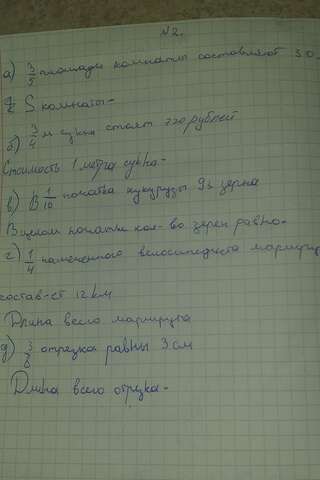 №2.
а) 3/5 площади комнаты составляют 30
S комнаты-
б) 3/4 м сукна стоят 720 рублей
Стоимость 1 метра сукна-
в) В 1/10 початка кукурузы 93 зерна
В целом початке кол-во зерен равно-
г) 1/4 намеченного велосипедиста маршрут
состав-ст 12 км
Длина всего маршрута
д) 3/8 отрезка равны 3 см
Длина всего отрезка-